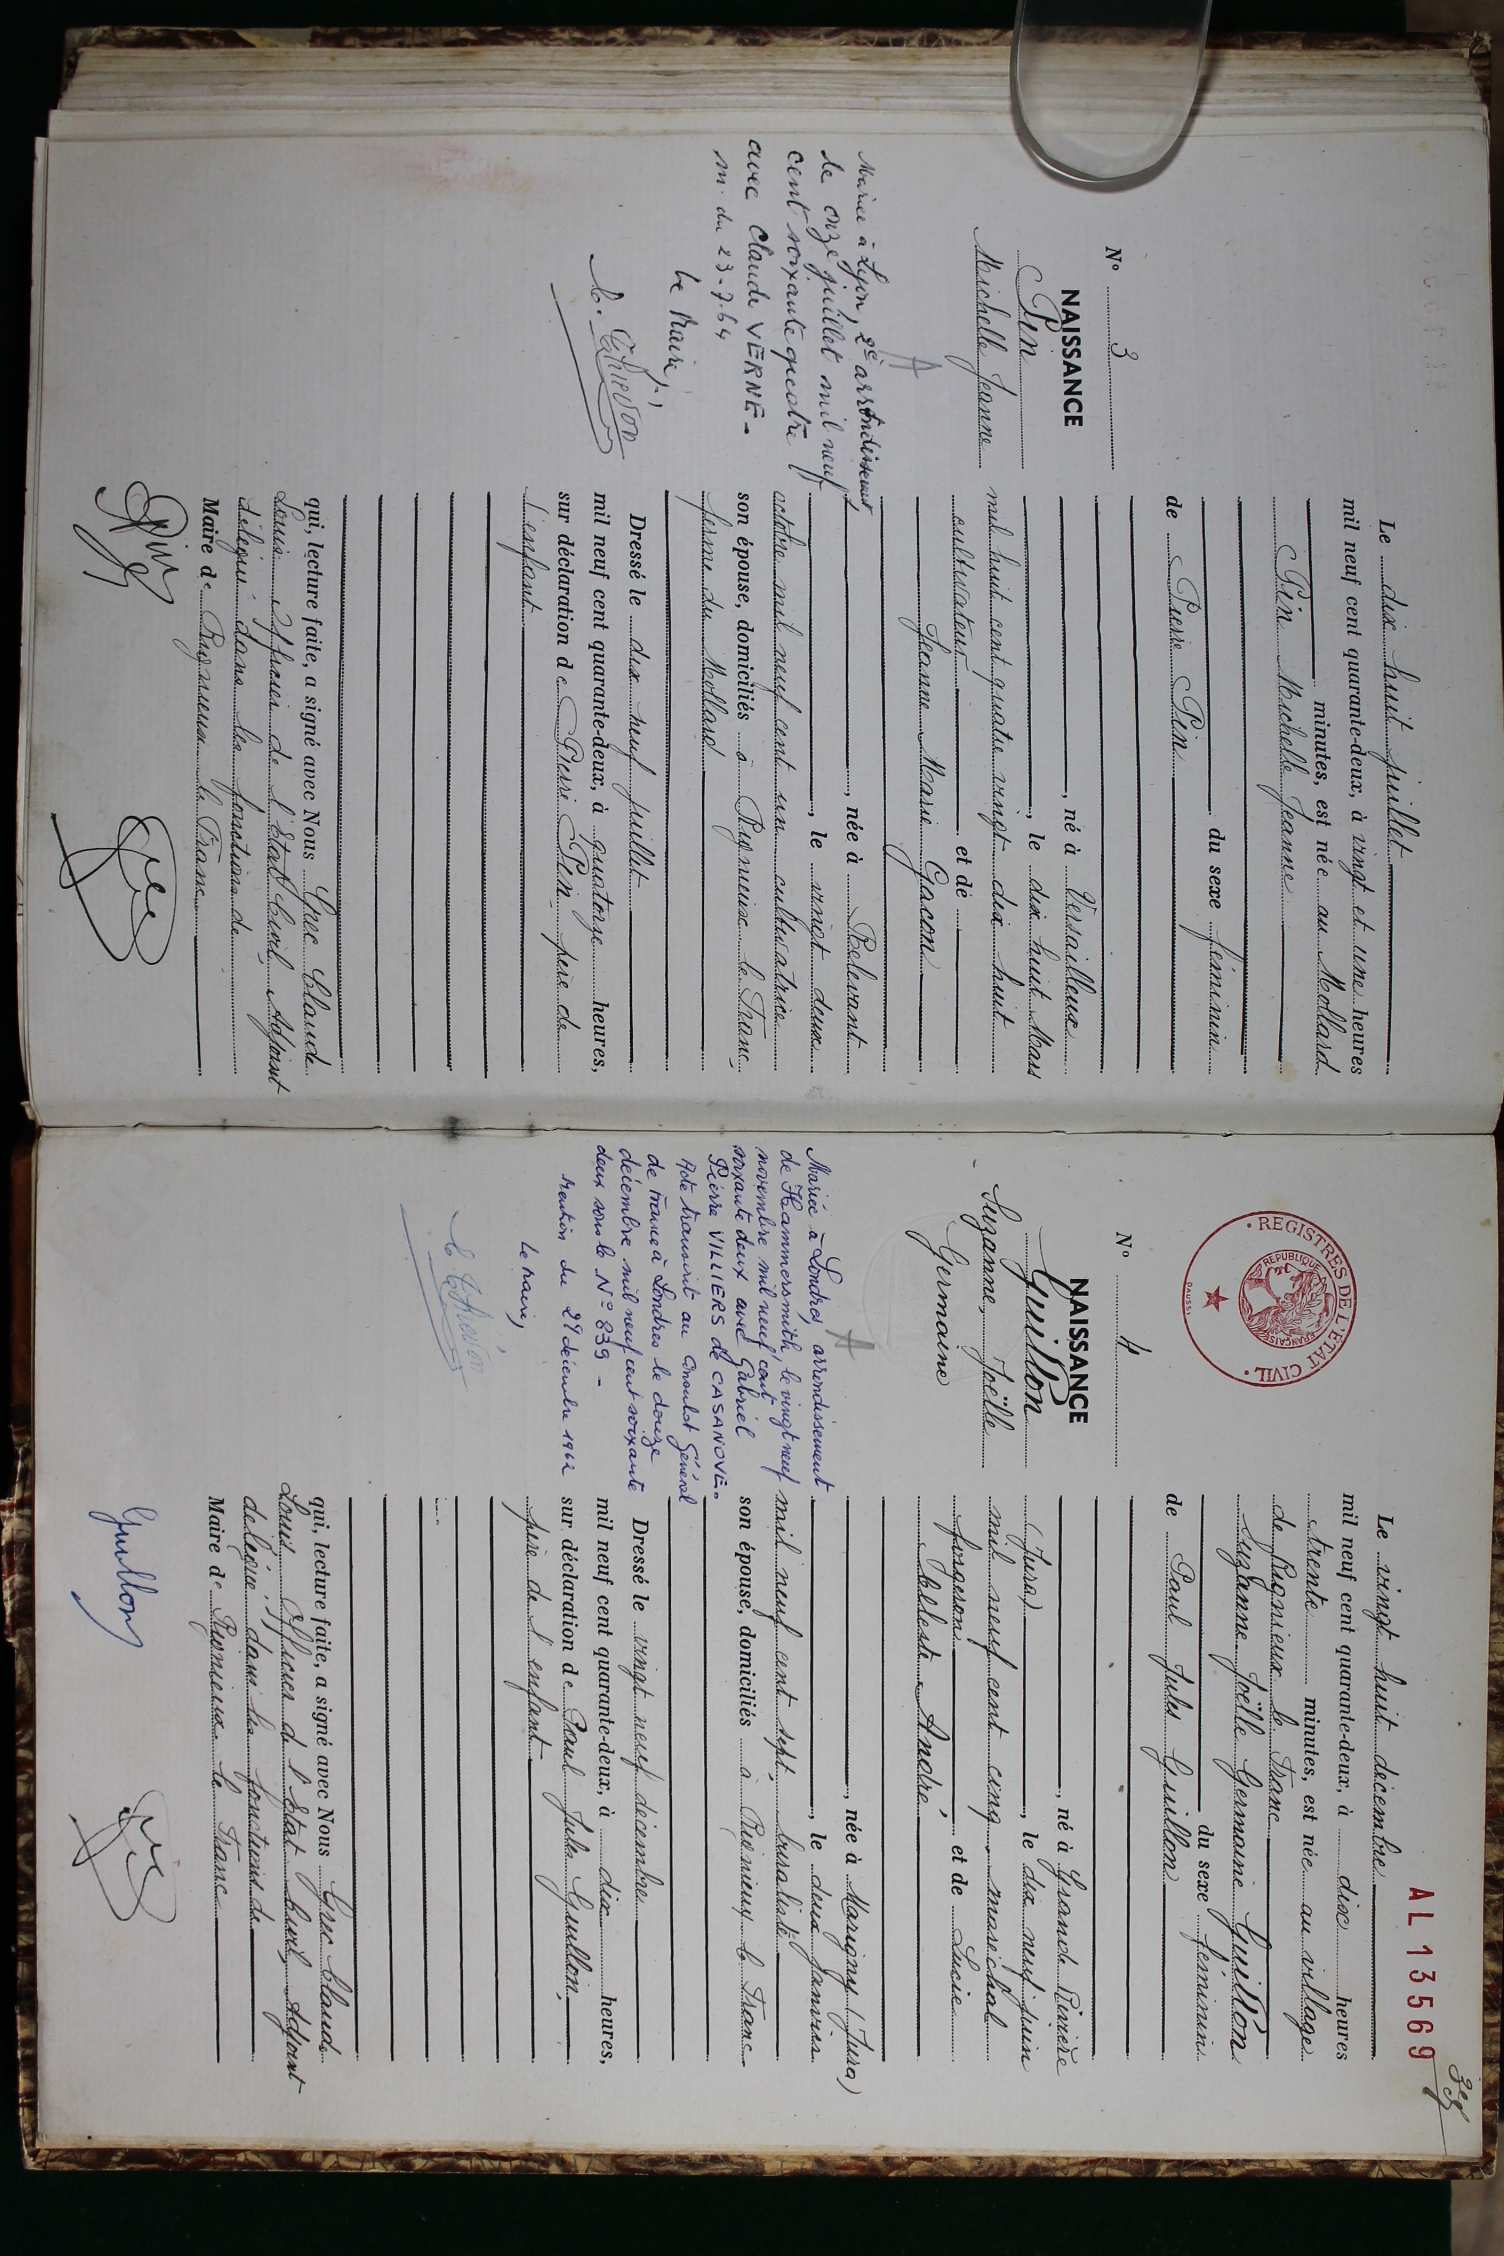 N° 3
NAISSANCE
Pin
Michelle Jeanne
Mariée à Lyon, 2e arrondissement
le onze juillet mil neuf
cent soixante quatre
avec Claude VERNE -
m. du 23.7.64
Le Maire,
Le dix huit juillet
mil neuf cent quarante-deux, à vingt et une heures
minutes, est née au Mollard
Pin Michelle Jeanne
du sexe féminin
de Pierre Pin
, né à Versailleux
, le dix huit Mars
mil huit cent quatre vingt dix huit
cultivateur et de
Jeanne Marie Gacon
, née à Relevant
, le vingt deux
octobre mil neuf cent un cultivatrice
son épouse, domiciliés à Rignieux le Franc,
ferme du Mollard
Dressé le dix neuf juillet
mil neuf cent quarante-deux, à quatorze heures,
sur déclaration de Pierre Pin, père de
l'enfant
qui, lecture faite, a signé avec Nous Grec Claude
Louis Officier de l'Etat Civil, Adjoint
délégué dans les fonctions de
Maire de Rignieux le Franc
Pin
REGISTRES DE L'ETAT CIVIL
REPUBLIQUE FRANÇAISE
DAUSSY
AL13569
N° 4
NAISSANCE
Guillon
Suzanne, Joëlle
Germaine
Mariée à Londres, arrondissement
de Hammersmith, le vingt neuf
novembre mil neuf cent
soixante deux avec Gabriel
Pierre VILLIERS de CASANOVE.
Acte transcrit au Consulat Général
de France à Londres le douze
décembre mil neuf cent soixante
deux sous le N° 839 -
Mention du 29 décembre 1962
Le Maire,
Le vingt huit décembre
mil neuf cent quarante-deux, à dix heures
trente minutes, est née au village
de Rignieux le Franc
Suzanne Joëlle Germaine Guillon
du sexe féminin
de Paul Jules Guillon
, né à Grande Rivière
(Jura) , le dix neuf juin
mil neuf cent cinq, maréchal
forgeron et de Lucie
Céleste André
, née à Marigny (Jura)
, le deux janvier
mil neuf cent sept, buraliste
son épouse, domiciliés à Rignieux le Franc
Dressé le vingt neuf décembre
mil neuf cent quarante-deux, à dix heures,
sur déclaration de Paul Jules Guillon,
père de l'enfant
qui, lecture faite, a signé avec Nous Grec Claude
Louis Officier de l'Etat Civil, Adjoint
délégué dans les fonctions de
Maire de Rignieux le Franc
Guillon